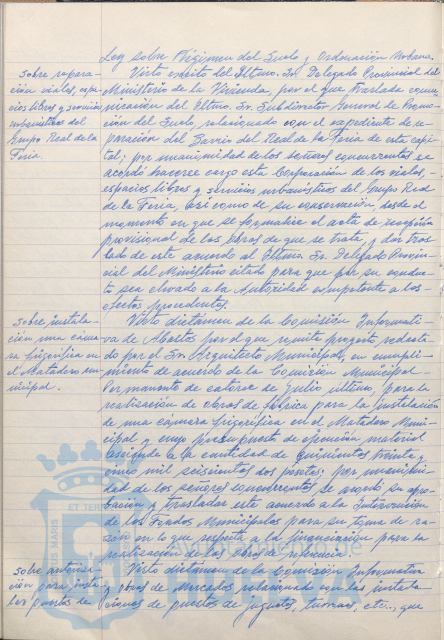 Ley sobre Régimen del Suelo y Ordenación Urbana.
Sobre repara-
ción viales, espa-
cios libres y servicios
urbanísticos del
Grupo Real de la
Feria.
Visto escrito del Iltmo. Sr. Delegado Provincial del
Ministerio de la Vivienda, por el que traslada comu-
nicación del Iltmo. Sr. Subdirector General de Promo-
ción del Suelo, relacionado con el expediente de re-
paración del Barrio del Real de la Feria de esta capi-
tal; por unanimidad de los señores concurrentes se
acordó hacerse cargo esta Corporación de los viales,
espacios libres y servicios urbanísticos del Grupo Real
de la Feria, así como de su conservación desde el
momento en que se formalice el acta de recepción
provisional de las obras de que se trata y dar tras-
lado de este acuerdo al Iltmo. Sr. Delegado Provin-
cial del Ministerio citado para que por su conduc-
to sea elevado a la Autoridad competente a los
efectos procedentes.
Sobre instala-
ción una cáma-
ra frigorífica en
el Matadero mu-
nicipal.
Visto dictamen de la Comisión Informati-
va de Abastos por el que remite proyecto redacta-
do por el Sr. Arquitecto Municipal, en cumpli-
miento de acuerdo de la Comisión Municipal
Permanente de catorce de Julio último, para la
realización de obras de fábrica para la instalación
de una cámara frigorífica en el Matadero Muni-
cipal y cuyo presupuesto de ejecución material
asciende a la cantidad de quinientas treinta y
cinco mil seiscientas dos pesetas; por unanimi-
dad de los señores concurrentes se acordó su apro-
bación y trasladar este acuerdo a la Intervención
de los Fondos Municipales para su toma de ra-
zón en lo que respecta a la financiación para la
realización de las obras de referencia.
Sobre autoriza-
ción para insta-
lar puestos de
Visto dictamen de la Comisión Informativa
y obras de mercados relacionado con las instala-
ciones de puestos de juguetes, turrones, etc..., que
ET TERR
IS MARIS